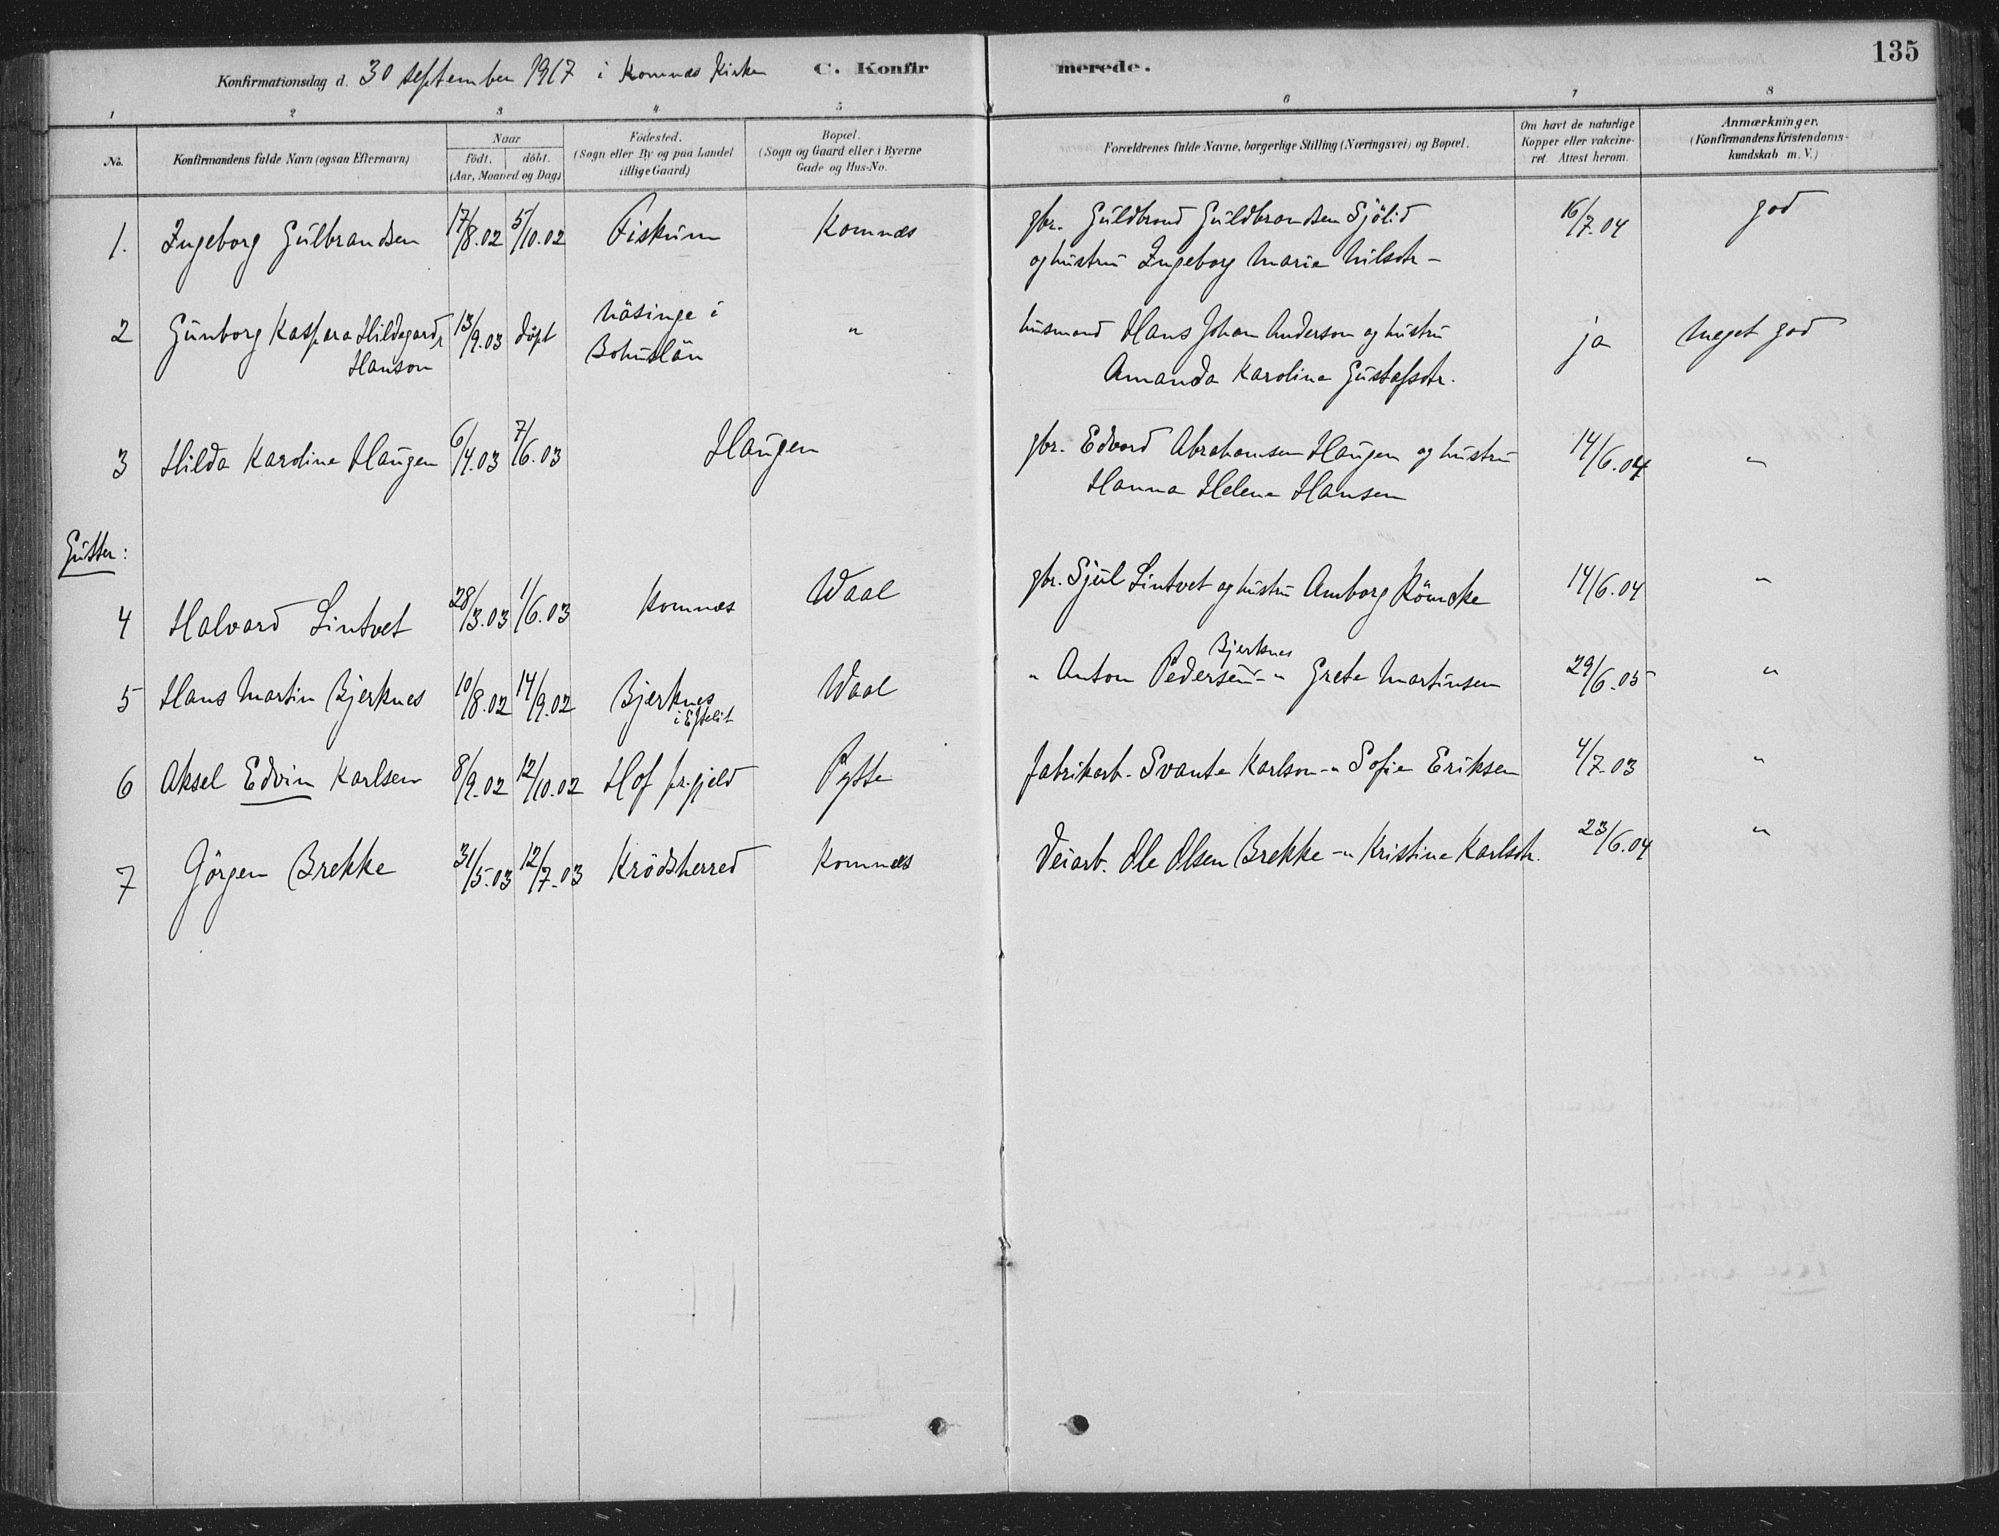 135
Konfirmationsdag d. 30 september 1917 i Komnes Kirke C. Konfirmerede.
1 2 3 4 5 6 7 8
No. Konfirmandens fulde Navn (ogsaa Efternavn) Naar født. døbt. (Aar, Moaned og Dag) Fødested. (Sogn eller By og paa Landet tillige Gaard) Bopæl. (Sogn og Gaard eller i Byerne Gade og Hus-No. Forældrenes fulde Navne, borgerlige Stilling (Næringsvei) og Bopæl. Om havt de naturlige Kopper eller vakcineret. Attest herom. Anmærkninger. (Konfirmandens Kristendomskundskab m. V.)
1. Ingeborg Gulbrandsen 17/8.02 5/10.02 Fiskum Komnæs gbr. Guldbrand Guldbrandsen Sjölid 16/7.04 god
og hustru Ingeborg Marie Nilsdtr -
2 Gunborg Kaspara Hildegard 13/9.03 döpt Näsinge i " husmand Hans Johan Anderson og hustru ja Meget god
Hanson Bohuslän Amanda Karolina Gustafsdtr.
3 Hilda Karoline Haugen 6/4.03 7/6.03 Haugen gbr. Edvard Abrahamsen Haugen og hustru 14/6.04 "
Hanna Helene Hansen
Gutter:
4 Halvard Lintvet 28/3.03 1/6.03 Komnæs Waal gbr. Sjul Lintvet og hustru Amborg Römcke 14/6.04 "
5 Hans Martin Bjerknes 10/8.02 14/9.02 Bjerknes Waal " Anton Pedersen Bjerknes - " Grete Martinsen 29/6.05 "
i Efteløt
6 Aksel Edvin Karlsen 8/9.02 12/10.02 Hof pr.gjeld Pytte fabrikarb. Svante Karlson - " Sofie Eriksen 4/7.03 "
7 Görgen Brekke 31/5.03 12/7.03 Krödsherred Komnæs Veiarb. Ole Olsen Brekke - " Kristine Karlsdtr. 23/6.04 "